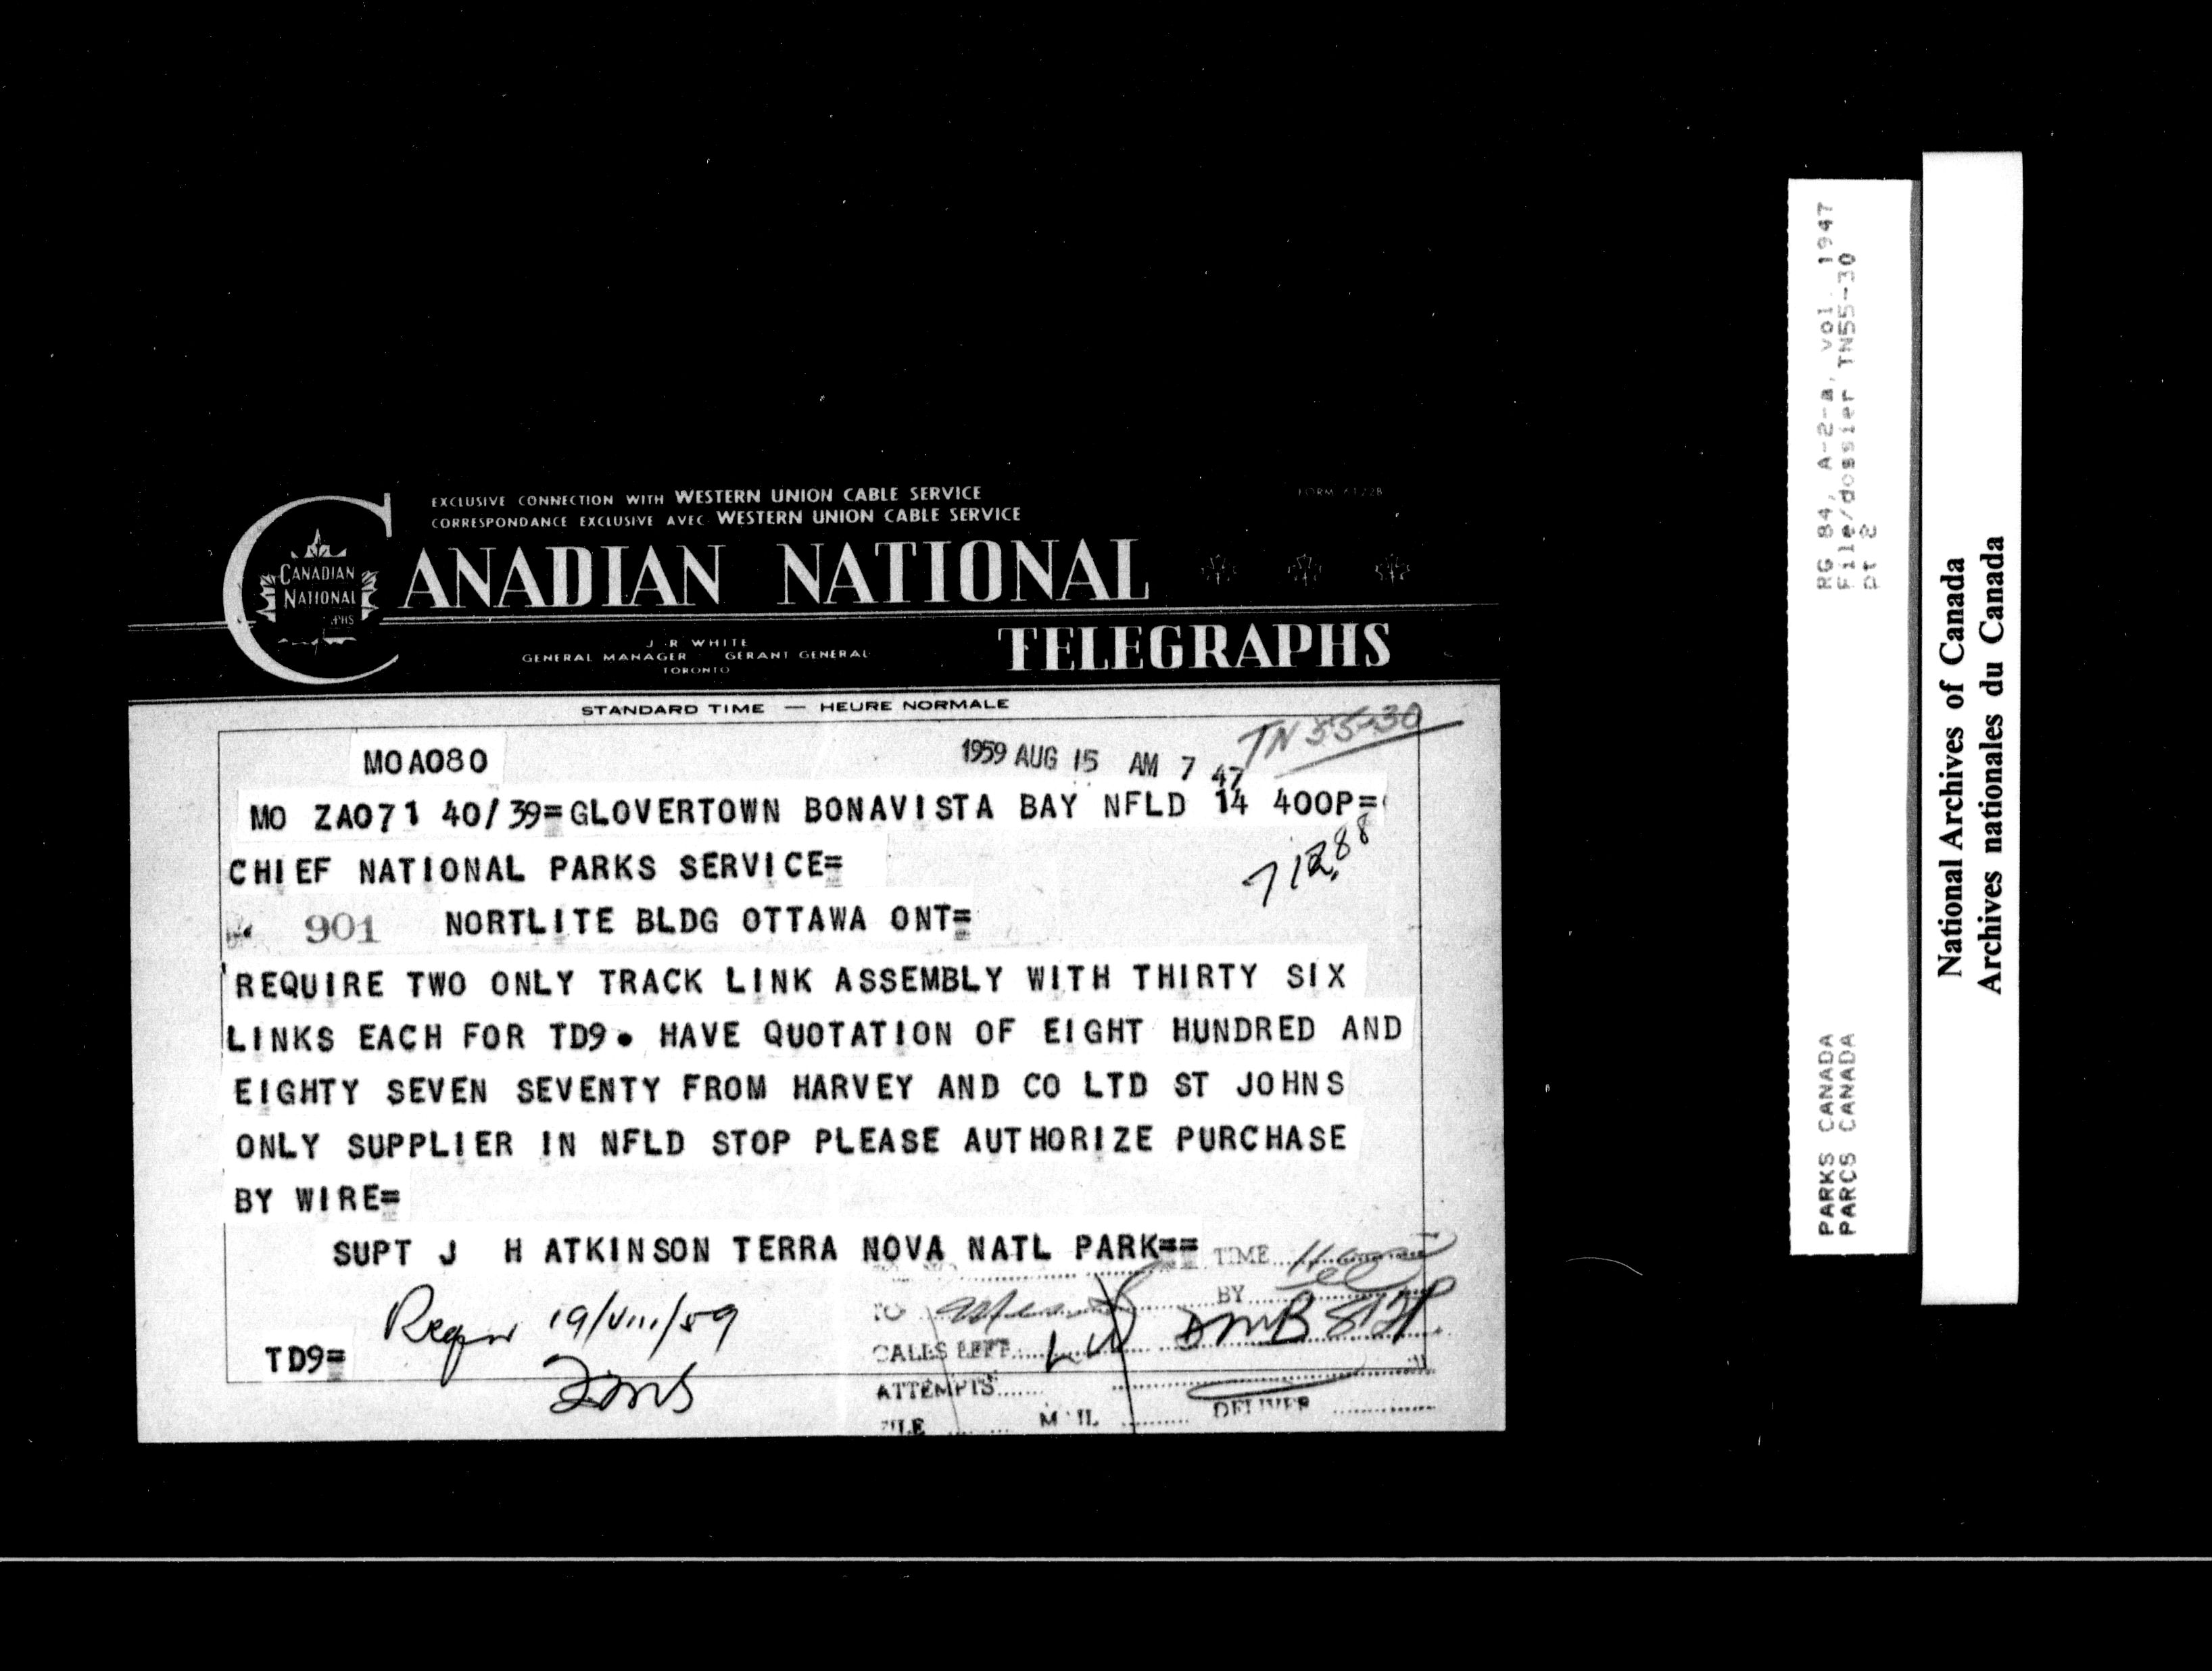 EXCLUSIVE CONNECTION WITH WESTERN UNION CABLE SERVICE
CORRESPONDANCE EXCLUSIVE AVEC WESTERN UNION CABLE SERVICE
FORM 6122B
CANADIAN NATIONAL
CANADIAN
NATIONAL
TELEGRAPHS
J. R. WHITE
GENERAL MANAGER GERANT GENERAL
TORONTO
STANDARD TIME — HEURE NORMALE
TN 55-30
MOA080 1959 AUG 15 AM 7 47
MO ZA071 40/39=GLOVERTOWN BONAVISTA BAY NFLD 14 400P=
712.88
CHIEF NATIONAL PARKS SERVICE=
901 NORTLITE BLDG OTTAWA ONT=
REQUIRE TWO ONLY TRACK LINK ASSEMBLY WITH THIRTY SIX
LINKS EACH FOR TD9. HAVE QUOTATION OF EIGHT HUNDRED AND
EIGHTY SEVEN SEVENTY FROM HARVEY AND CO LTD ST JOHNS
ONLY SUPPLIER IN NFLD STOP PLEASE AUTHORIZE PURCHASE
BY WIRE=
SUPT J H ATKINSON TERRA NOVA NATL PARK==
TIME
19/VIII/59
TO BY
TD9=
CALLS LEFT
ATTEMPTS
FILE MAIL DELIVER
RG 84, A-2-a, vol. 1947
File/dossier TN55-30
pt 2
PARKS CANADA
PARCS CANADA
National Archives of Canada
Archives nationales du Canada